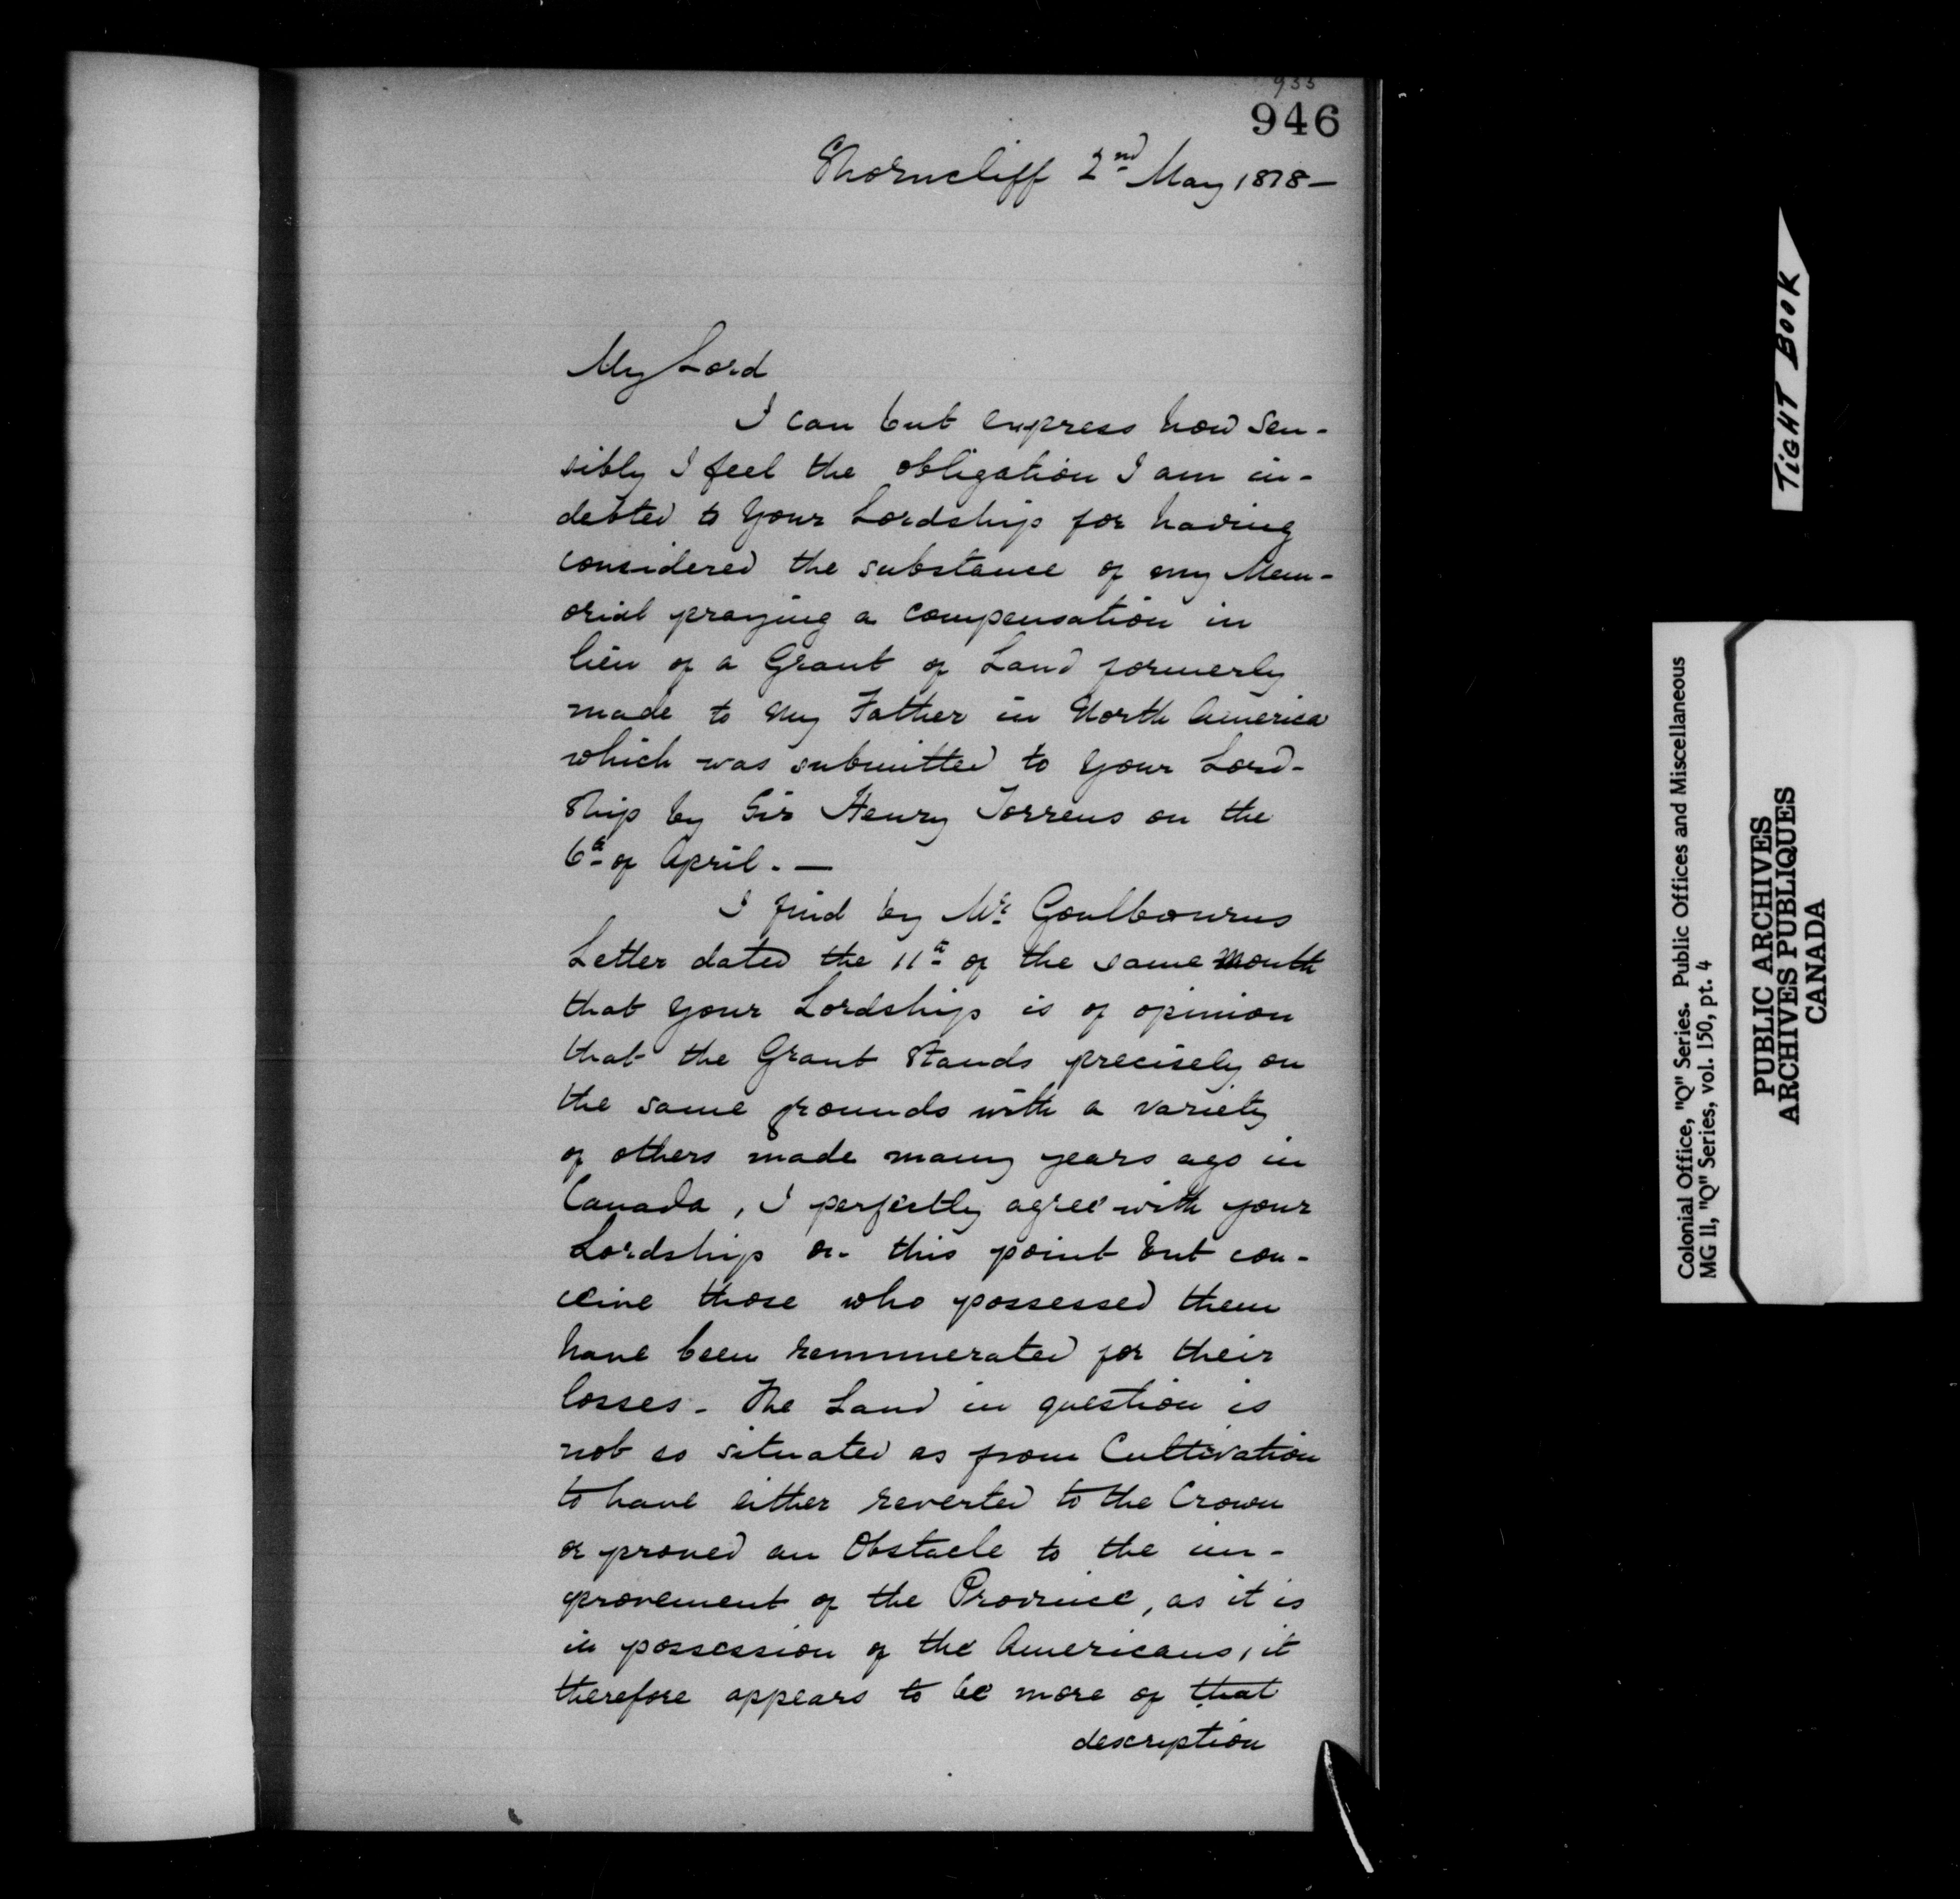 933
946
Thorncliff 2nd May 1818 —
My Lord
I can but express how sen-
sibly I feel the obligation I am in-
debted to Your Lordship for having
considered the substance of my Mem-
orial praying a compensation in
lieu of a Grant of Land formerly
made to my Father in North America
which was submitted to Your Lord-
ship by Sir Henry Torrens on the
6th of April. —
I find by Mr. Goulbourns
Letter dated the 11th of the same Month
that Your Lordship is of opinion
that the Grant Stands precisely on
the same grounds with a variety
of others made many years ago in
Canada, I perfectly agree with your
Lordship on this point but con-
ceive those who possessed them
have been remunerated for their
losses - The Land in question is
not so situated as from Cultivation
to have either reverted to the Crown
or proved an Obstacle to the im-
provement of the Province, as it is
in possession of the Americans, it
therefore appears to be more of that
description
TIGHT BOOK
Colonial Office, "Q" Series. Public Offices and Miscellaneous
MG 11, "Q" Series, vol. 150, pt. 4
PUBLIC ARCHIVES
ARCHIVES PUBLIQUES
CANADA